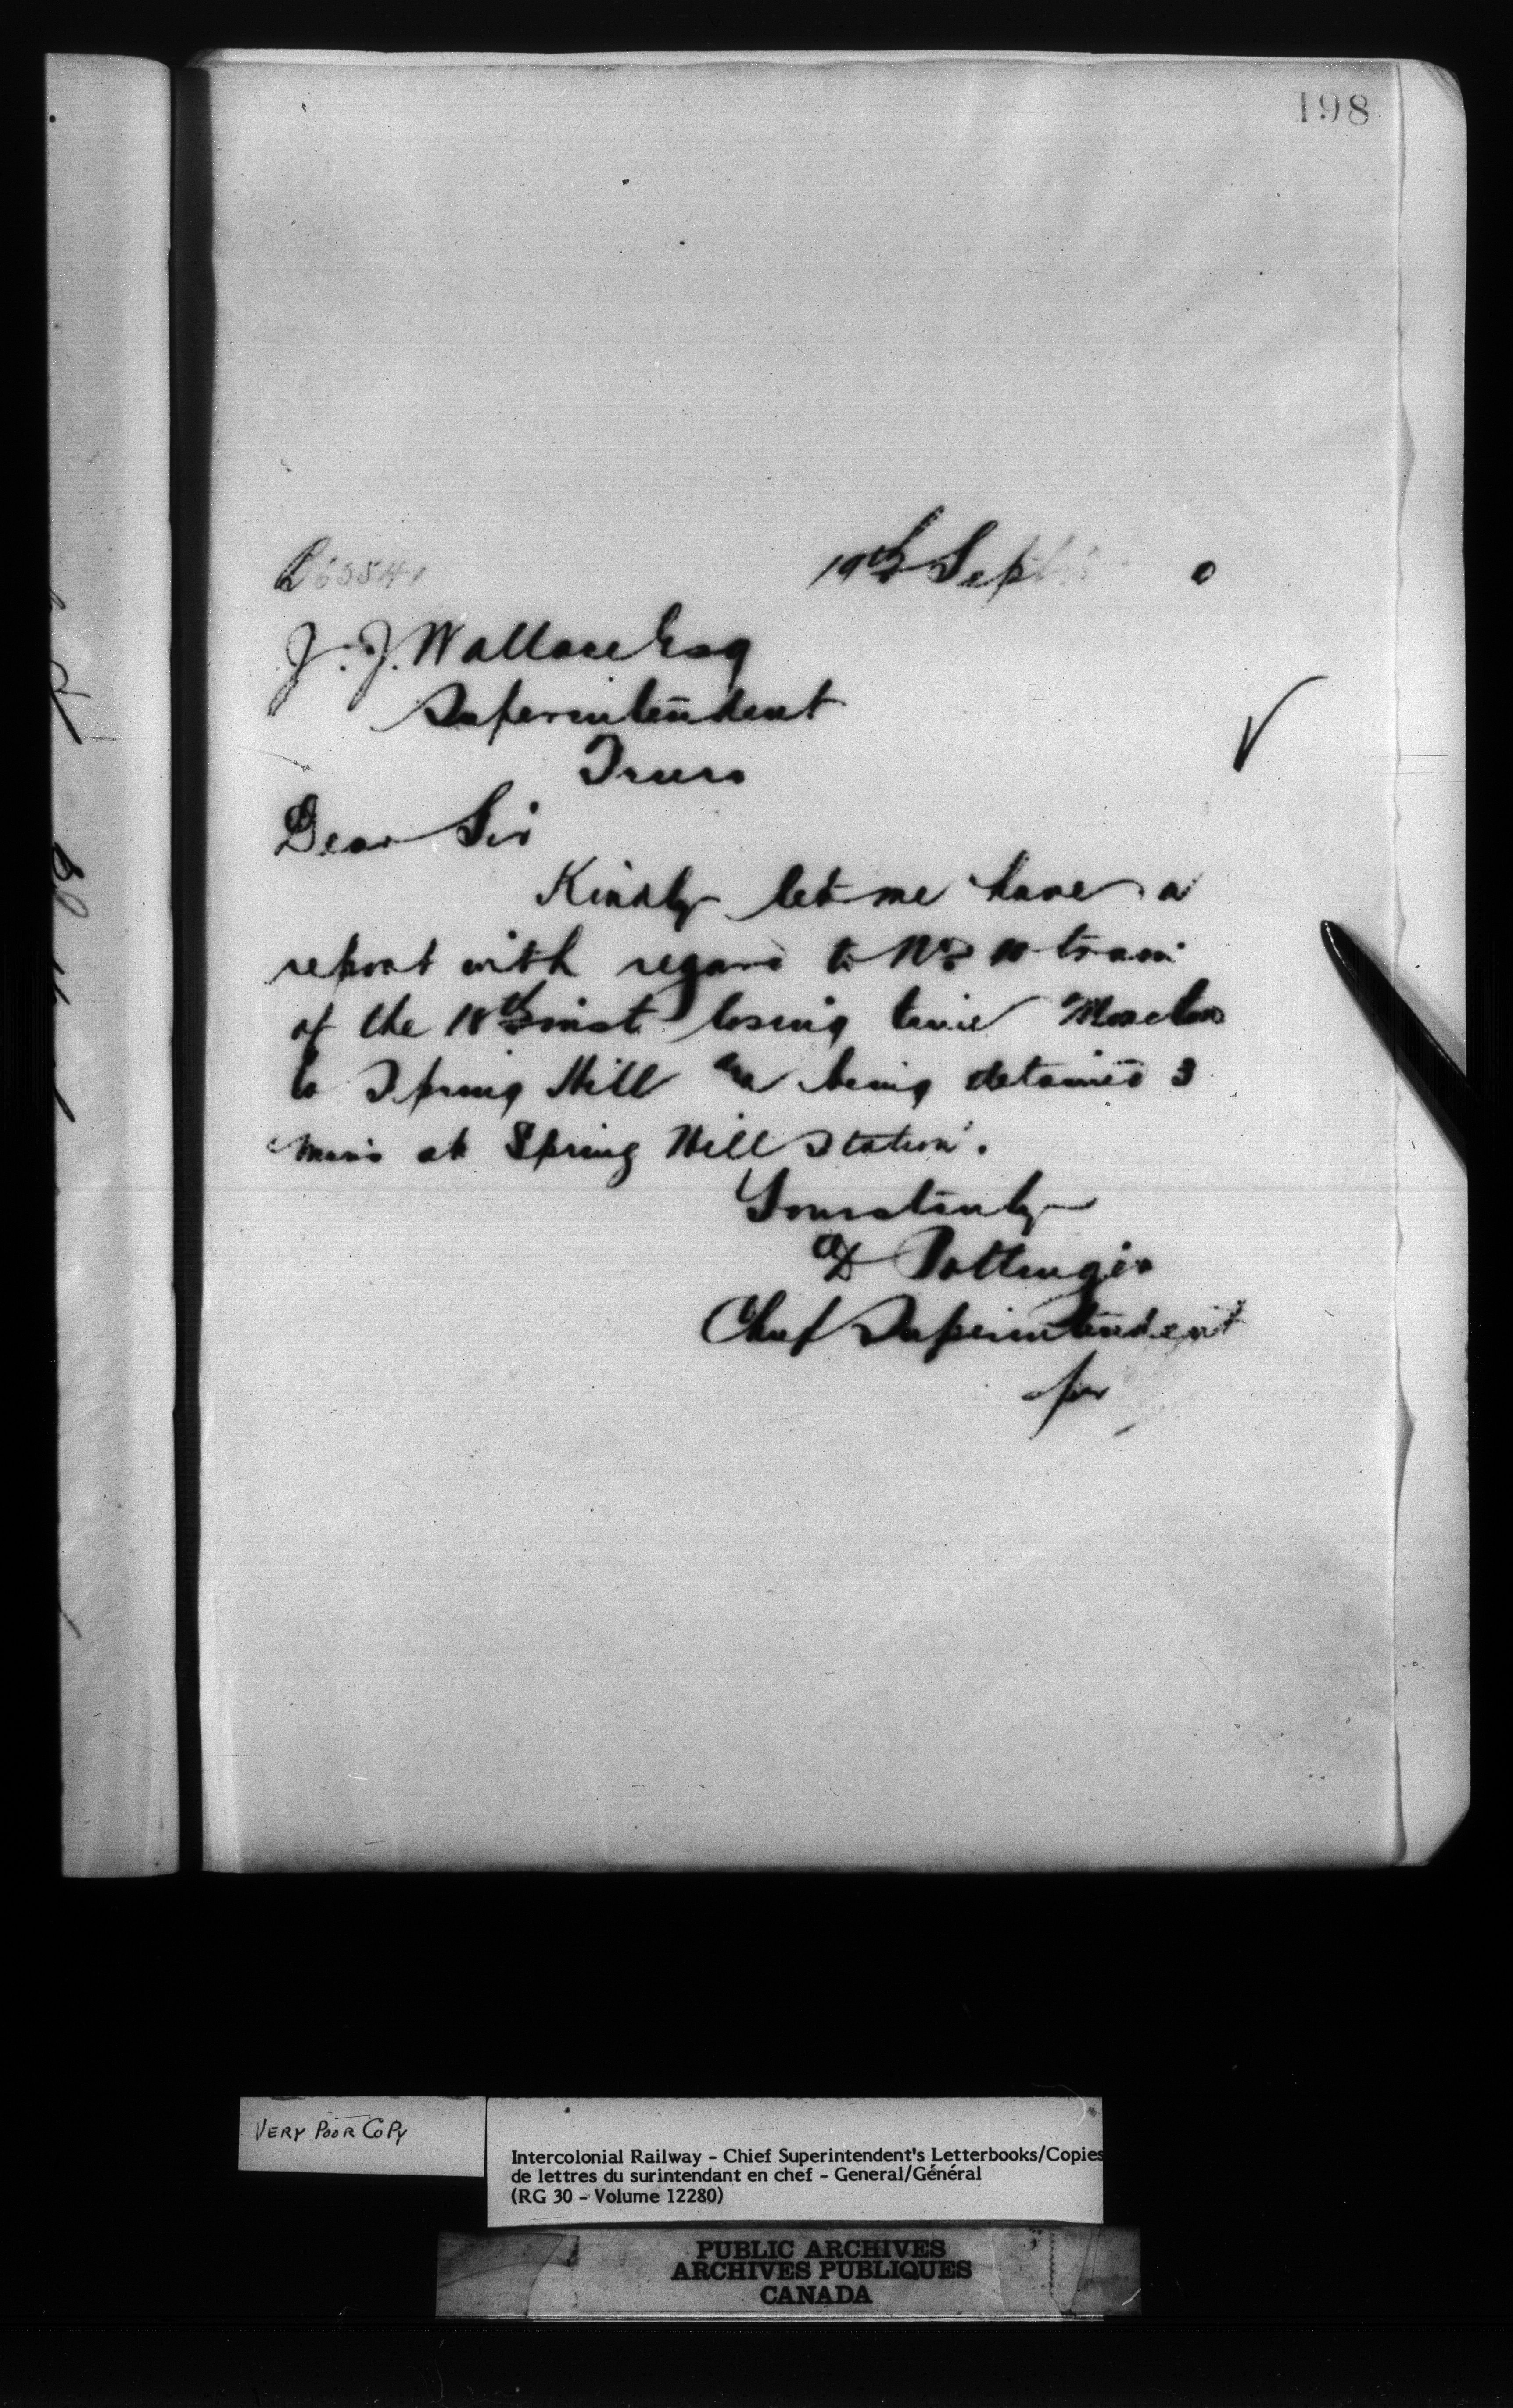 198
19th Sept 0
J. J. Wallace Esq
Superintendent
Truro
Dear Sir
Kindly let me have a
report with regard to No train
of the 18th inst losing time Moncton
to Spring Hill and being detained 3
mins at Spring Hill Station.
Yours truly
D Pottinger
Chief Superintendent
per
VERY POOR COPY
Intercolonial Railway - Chief Superintendent's Letterbooks/Copies
de lettres du surintendant en chef - General/Général
(RG 30 - Volume 12280)
PUBLIC ARCHIVES
ARCHIVES PUBLIQUES
CANADA